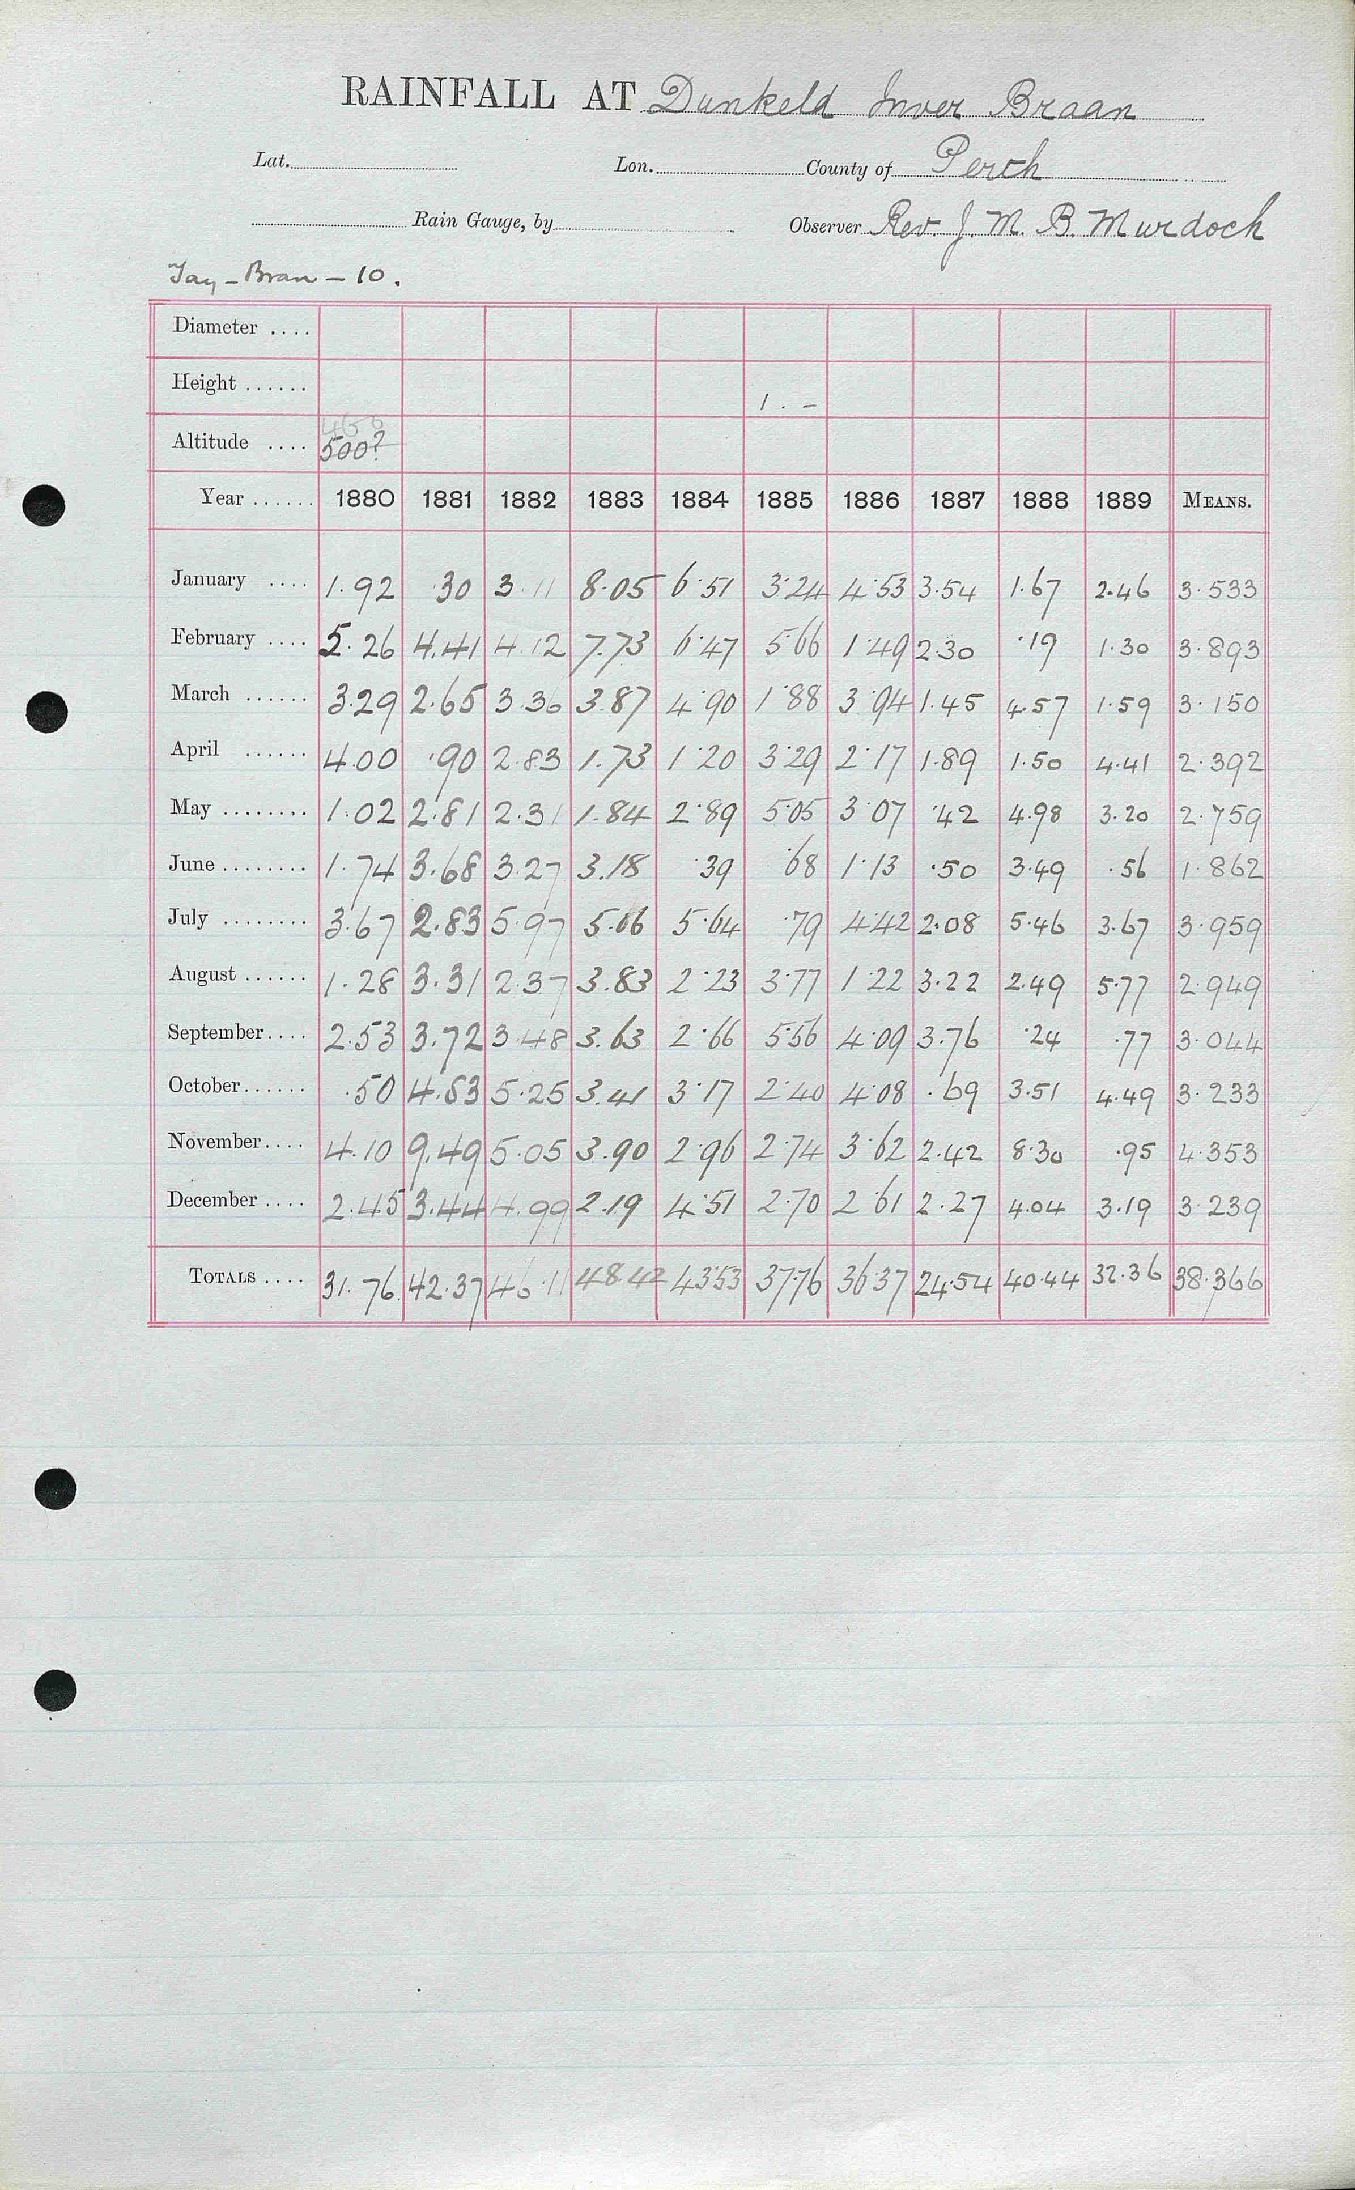 RAINFALL AT Dunkeld Inver Braan
Lat. Lon. County of Perth
Rain Gauge, by Observer Rev. J. M. B. Murdoch
Tay - Bran - 10.
Diameter ....
Height ...... 1 . -
466
Altitude .... 500?
Year ...... 1880 1881 1882 1883 1884 1885 1886 1887 1888 1889 MEANS.
January .... 1.92 .30 3.11 8.05 6.51 3.24 4.53 3.54 1.67 2.46 3.533
February .... 5.26 4.41 4.12 7.73 6.47 5.66 1.49 2.30 .19 1.30 3.893
March ...... 3.29 2.65 3.36 3.87 4.90 1.88 3.94 1.45 4.57 1.59 3.150
April ...... 4.00 .90 2.83 1.73 1.20 3.29 2.17 1.89 1.50 4.41 2.392
May ........ 1.02 2.81 2.31 1.84 2.89 5.05 3.07 .42 4.98 3.20 2.759
June ........ 1.74 3.68 3.27 3.18 .39 .68 1.13 .50 3.49 .56 1.862
July ........ 3.67 2.83 5.97 5.06 5.64 .79 4.42 2.08 5.46 3.67 3.959
August ...... 1.28 3.31 2.37 3.83 2.23 3.77 1.22 3.22 2.49 5.77 2.949
September .... 2.53 3.72 3.48 3.63 2.66 5.56 4.09 3.76 .24 .77 3.044
October ...... .50 4.83 5.25 3.41 3.17 2.40 4.08 .69 3.51 4.49 3.233
November .... 4.10 9.49 5.05 3.90 2.96 2.74 3.62 2.42 8.30 .95 4.353
December .... 2.45 3.44 4.99 2.19 4.51 2.70 2.61 2.27 4.04 3.19 3.239
TOTALS .... 31.76 42.37 46.11 48.42 43.53 37.76 36.37 24.54 40.44 32.36 38.366